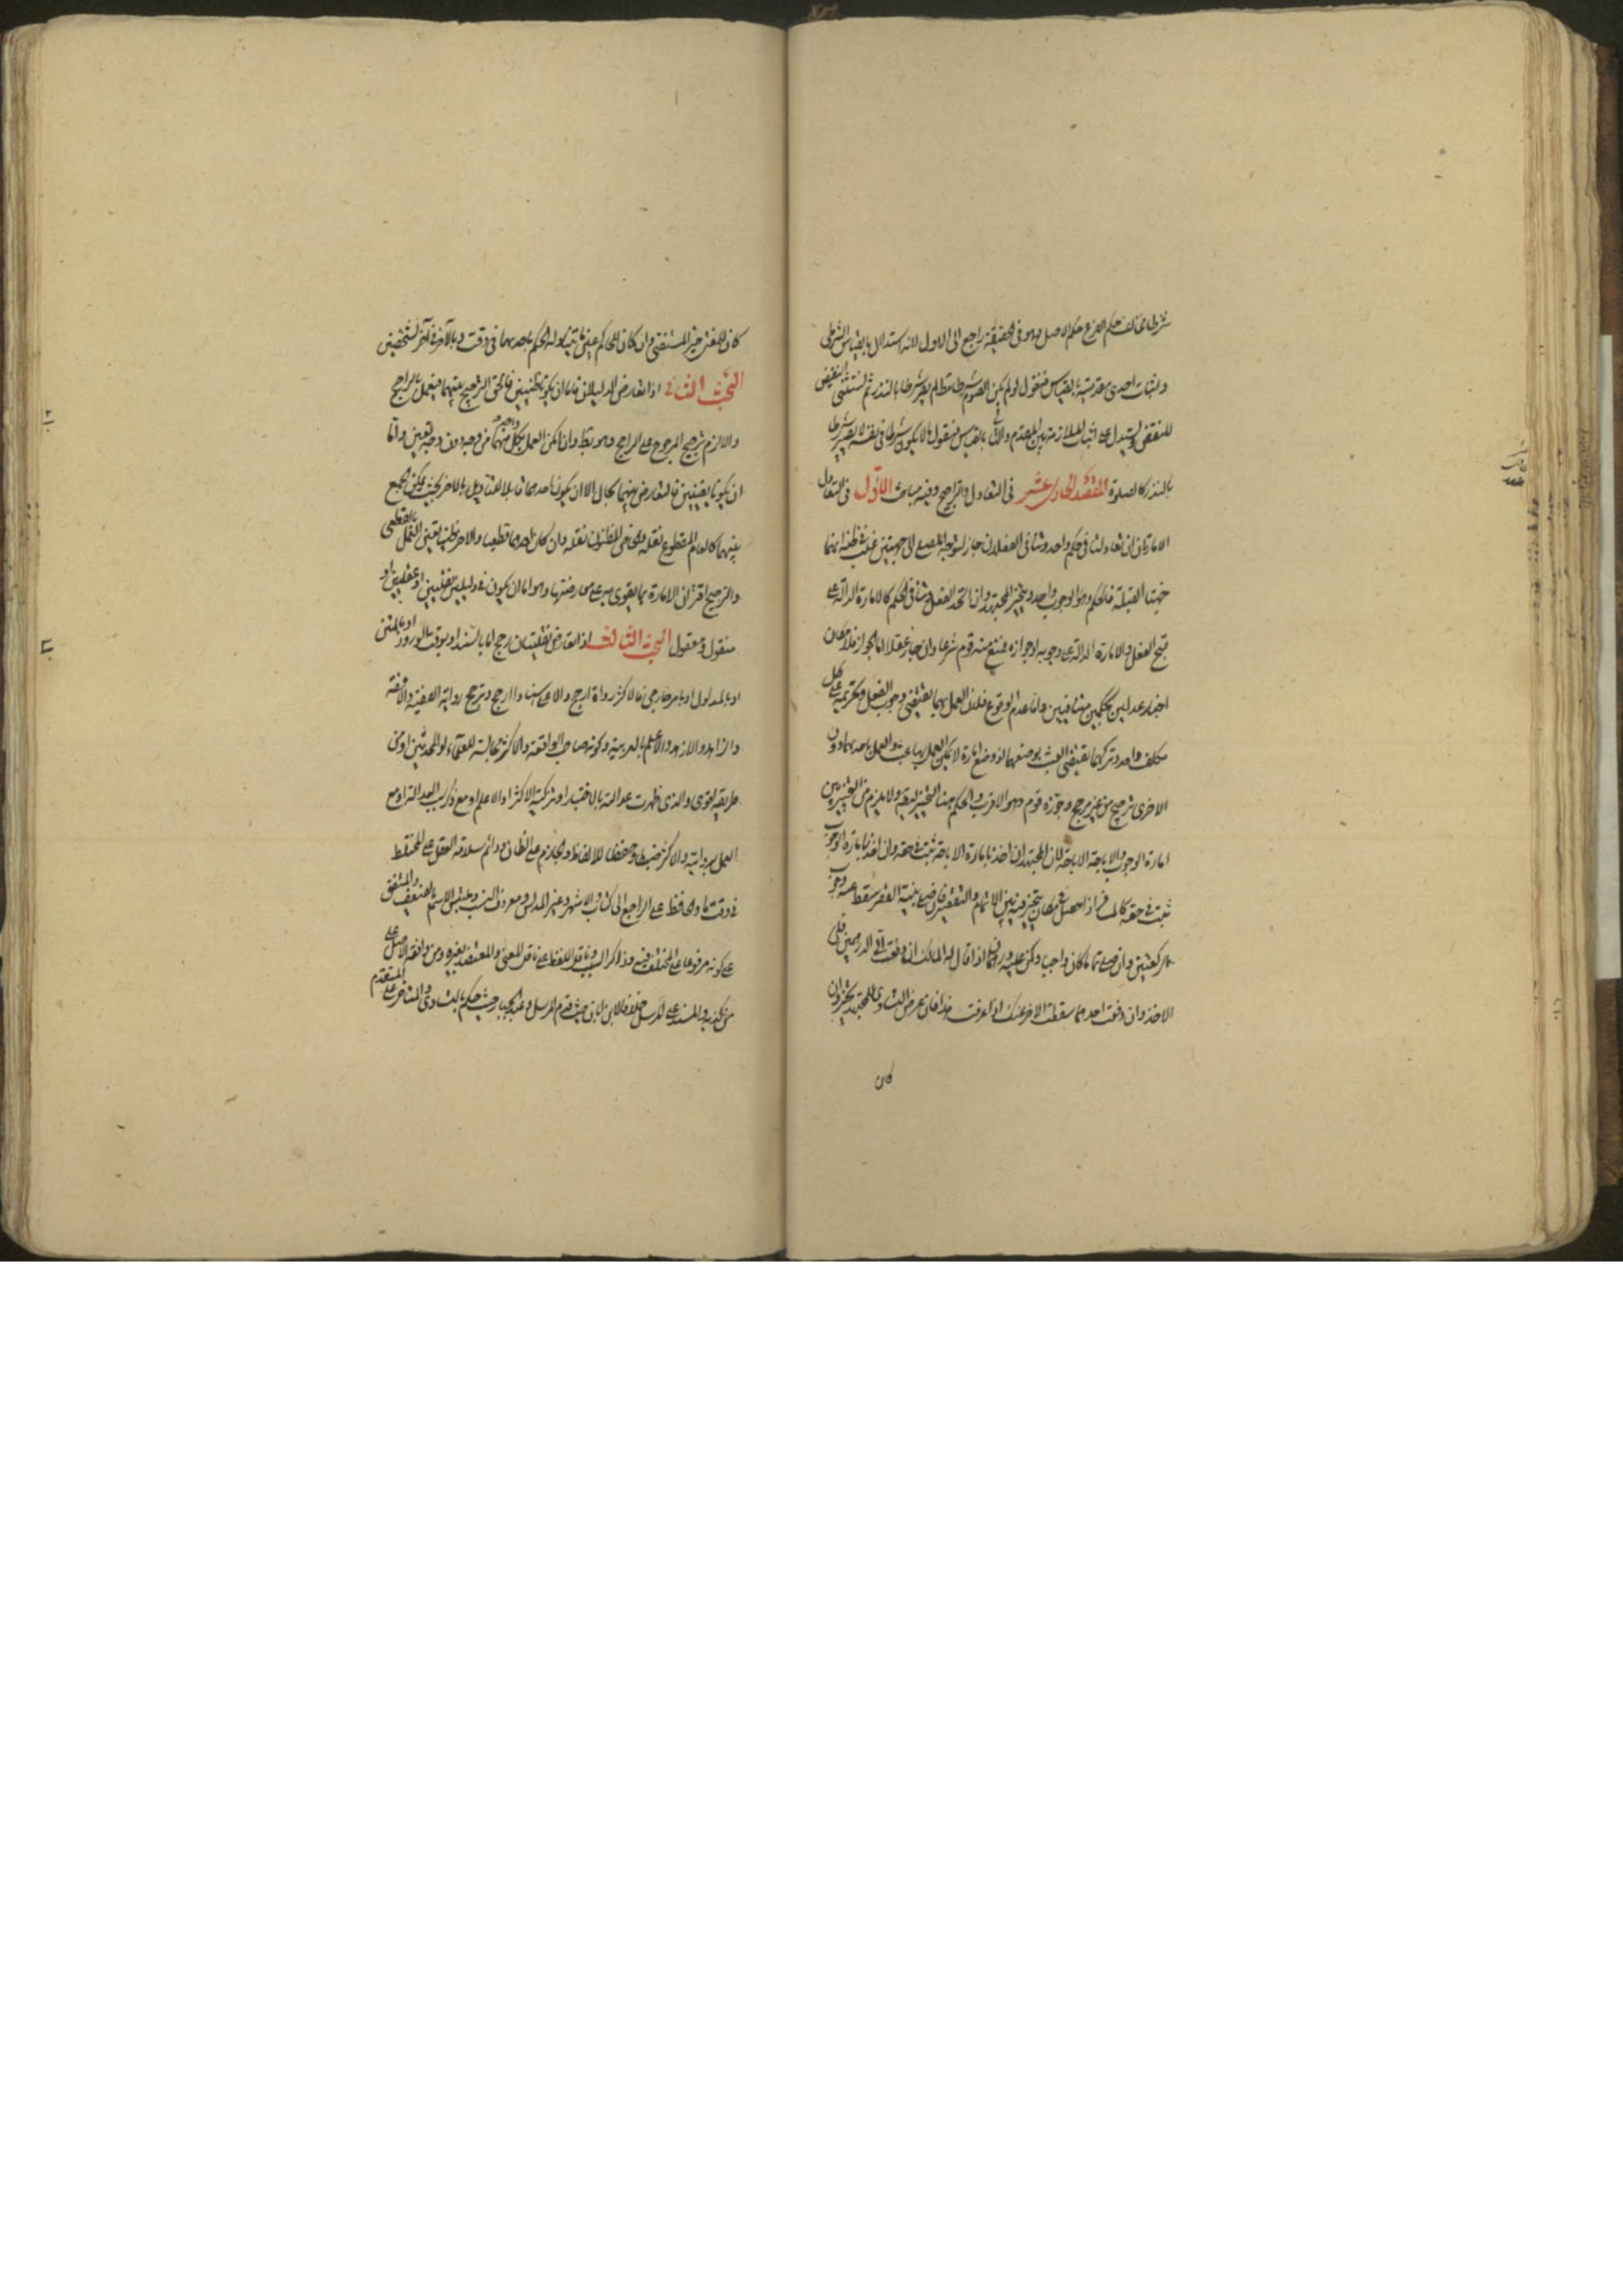 شرطا يخالف حكم الفرع حكم الاصل وهو في الحقيقة راجع الى الاول لانه استدلال بالقياس الشرطي
واثبات احدى مقدمتيه بالقياس فنقول لو لم يكن الصوم شرطا مطلقا لم يصر شرطا بالنذر ثم نستثني النقيض
للنقض ويستدل على اثبات الملازمة بين المقدم والتالي بالقياس فنقول ما لا يكون شرطا في نفسه لا يصير شرطا
بالنذر كالصلوة المقصد الحادي عشر في التعادل والتراجيح وفيه مباحث الاول في التعادل
الامارتان ان تعادلتا في حكم واحد وتنافى الفعلان جاز لتوجه المصلي الى جهتين غلب ظنه انهما
جهتا القبلة فالحكم وهو الوجوب واحد ويتخير المجتهد وان اتحد الفعل وتنافى الحكم كالامارة الدالة على
قبح الفعل والامارة الدالة على وجوبه او جوازه منع منه قوم شرعا وان جاز عقلا اما الجواز فلامكان
اخبار عدلين بحكمين متنافيين واما عدم الوقوع فلان العمل بهما يقتضي وجوب الفعل وتحريمه على كل
مكلف واحد وتركهما يقتضي العبث بوضعهما اذ وضع امارة لا يمكن العمل بها عبث والعمل باحدهما دون
الاخرى ترجيح من غير مرجح وجوزه قوم وهو الاقرب والحكم هنا التخيير ولا يلزم من التخيير بين
امارة الوجوب والاباحة الاباحة لان المجتهد ان اخذ بامارة الاباحة ثبت في حقه وان اخذ بامارة الوجوب
ثبت في حقه كالمسافر اذا حصل في مكان يتخير فيه بين الاتمام والتقصير فان صلى بنية القصر سقط عنه وجوب
الركعتين وان صلى تماما كان واجبا وكمن عليه درهمان اذا قال له المالك ان دفعت الي الدرهمين فلي
الاخذ وان دفعت احدهما سقط الاخر عنك اذا عرفت هذا فان عرض التساوي للمجتهد تخير وان
كان
كان للمفتي خير المستفتي وان كان للحاكم عين ما يتناوله الحكم باحدهما في وقت وبالاخر في آخر لشخصين
البحث الثاني اذا تعارض الدليلان فاما ان يكونا ظنيين فالحق الترجيح بينهما فيعمل بالراجح
والا لزم ترجيح المرجوح على الراجح وهو بط وان امكن العمل بكل واحد منهما من وجه دون وجه تعين واما
ان يكونا يقينيين فالتعارض بينهما محال الا ان يكون احدهما قابلا للتاويل بالاخر بحيث يمكن الجمع
بينهما كالعام المقطوع نقله والخاص المظنون نقله وان كان احدهما قطعيا والاخر ظنيا تعين العمل بالقطعي
والترجيح اقتران الامارة بما يقوى به على معارضتها وهو اما ان يكون في دليلين نقليين او عقليين او
منقول ومعقول البحث الثالث اذا تعارض نقليان رجح اما بالسند او بوقت الورود او بالمتن
او بالمدلول او بامر خارجي فالاكثر رواة ارجح والاعلى اسنادا ارجح وترجح رواية الفقيه والافقه
والزاهد والازهد والاعلم بالعربية وكونه صاحب الواقعة والاكثر مجالسة للعلماء او المحدثين او من
طريقه اقوى والذي ظهرت عدالته بالاختبار او تزكية الاكثر او الاعلم او مع ذكر سبب العدالة او مع
العمل بروايته والاكثر ضبطا وحفظا للالفاظ والجازم على الظان ودائم سلامة العقل على المختلط
في وقت ما والحافظ على الراجع الى كتاب والاشهر وغير المدلس ومعروف النسب وملتبس الاسم بالضعيف والمتفق
على كونه مرفوعا على المختلف فيه وذاكر السبب وناقل اللفظ على ناقل المعنى والمعتضد بغيره ومن وافقه الاصل على
من كذبه والمسند على المرسل خلافا لابن ابان حيث قدم المرسل وعبد الجبار حيث حكم بالتساوي والمتاخر على المتقدم